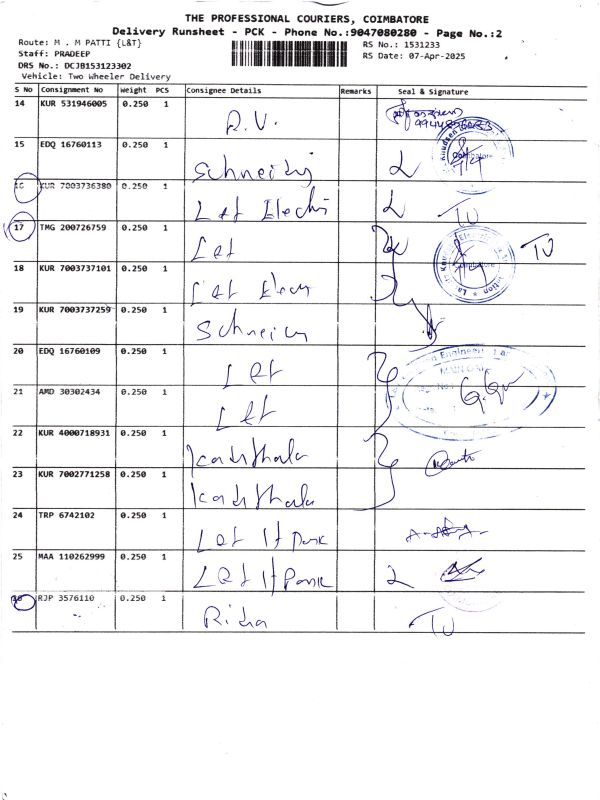 THE PROFESSIONAL COURIERS, COIMBATORE
Delivery Runsheet - PCK - Phone No.:9047080280 - Page No.:2
Route: M . M PATTI {L&T} RS No.: 1531233
Staff: PRADEEP RS Date: 07-Apr-2025
DRS No.: DCJB153123302
Vehicle: Two Wheeler Delivery
S No Consignment No Weight PCS Consignee Details Remarks Seal & Signature
14 KUR 531946005 0.250 1 R.V.
15 EDQ 16760113 0.250 1 Schneidr 2
16 KUR 7003736380 0.250 1 L&t Elechi 2 TU
17 TMG 200726759 0.250 1 L&t TU
18 KUR 7003737101 0.250 1 L&t Elecn
19 KUR 7003737259 0.250 1 Schneicr
20 EDQ 16760109 0.250 1 L&t
MAIN GATE
21 AMD 30302434 0.250 1 L&t
22 KUR 4000718931 0.250 1
23 KUR 7002771258 0.250 1
24 TRP 6742102 0.250 1 L&t It Park
25 MAA 110262999 0.250 1 L&t It Park 2
26 RJP 3576110 0.250 1 TU